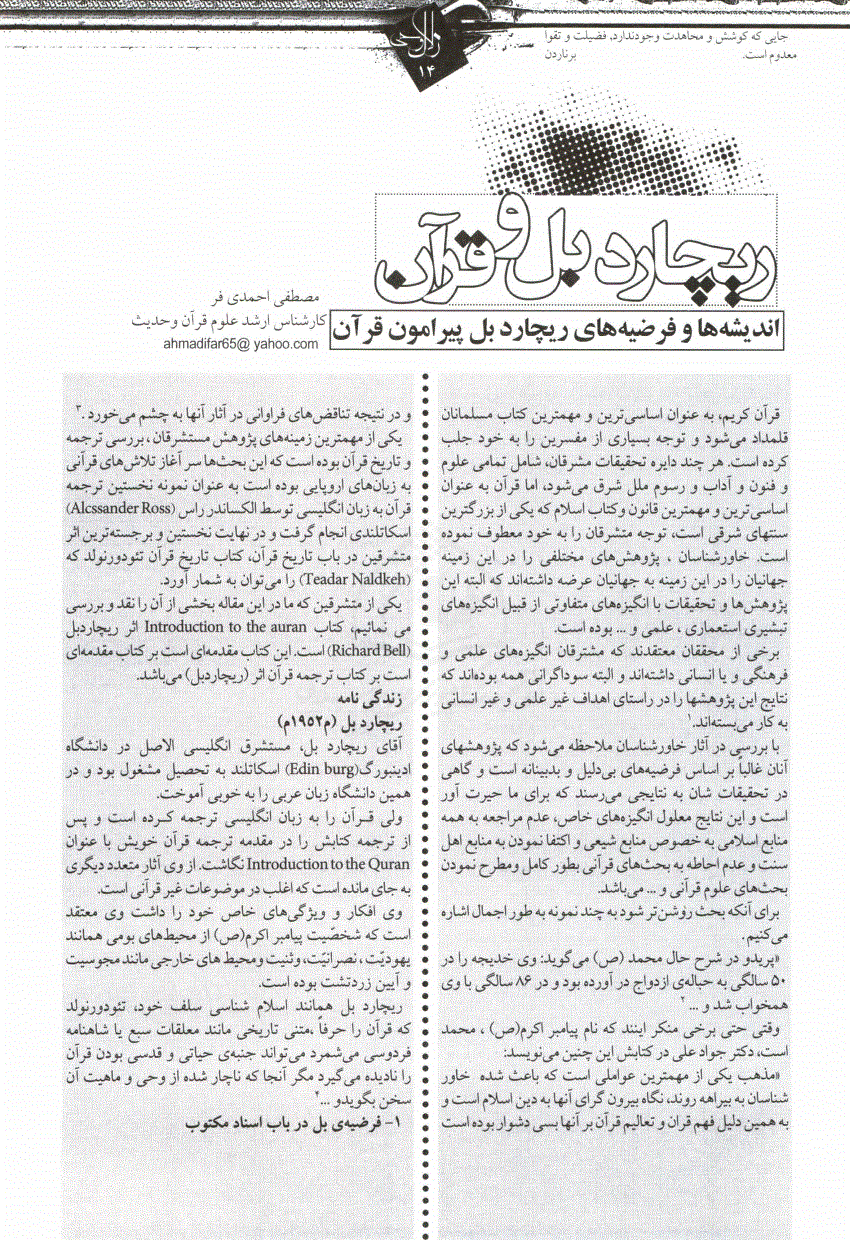 جایی که کوشش و مجاهدت وجودندارد، فضیلت و تقوا
معدوم است.
برناردن
زلال وحی
۱۴
ریچارد بل و قرآن
اندیشه‌ها و فرضیه‌های ریچارد بل پیرامون قرآن
مصطفی احمدی فر
کارشناس ارشد علوم قرآن وحدیث
ahmadifar65@ yahoo.com
قرآن کریم، به عنوان اساسی‌ترین و مهمترین کتاب مسلمانان
قلمداد می‌شود و توجه بسیاری از مفسرین را به خود جلب
کرده است. هر چند دایره تحقیقات مشرقان، شامل تمامی علوم
و فنون و آداب و رسوم ملل شرق می‌شود، اما قرآن به عنوان
اساسی‌ترین و مهمترین قانون وکتاب اسلام که یکی از بزرگترین
سنتهای شرقی است، توجه متشرقان را به خود معطوف نموده
است. خاورشناسان ، پژوهش‌های مختلفی را در این زمینه
جهانیان را در این زمینه به جهانیان عرضه داشته‌اند که البته این
پژوهش‌ها و تحقیقات با انگیزه‌های متفاوتی از قبیل انگیزه‌های
تبشیری استعماری ، علمی و ... بوده است.
برخی از محققان معتقدند که مشترقان انگیزه‌های علمی و
فرهنگی و یا انسانی داشته‌اند و البته سوداگرانی همه بوده‌اند که
نتایج این پژوهشها را در راستای اهداف غیر علمی و غیر انسانی
به کار می‌بسته‌اند.۱
با بررسی در آثار خاورشناسان ملاحظه می‌شود که پژوهشهای
آنان غالباً بر اساس فرضیه‌های بی‌دلیل و بدبینانه است و گاهی
در تحقیقات شان به نتایجی می‌رسند که برای ما حیرت آور
است و این نتایج معلول انگیزه‌های خاص، عدم مراجعه به همه
منابع اسلامی به خصوص منابع شیعی و اکتفا نمودن به منابع اهل
سنت و عدم احاطه به بحث‌های قرآنی بطور کامل ومطرح نمودن
بحث‌های علوم قرآنی و ... می‌باشد.
برای آنکه بحث روشن‌تر شود به چند نمونه به طور اجمال اشاره
می‌کنیم.
«پریدو در شرح حال محمد (ص) می‌گوید: وی خدیجه را در
۵۰ سالگی به حباله‌ی ازدواج در آورده بود و در ۸۶ سالگی با وی
همخواب شد و ... ۲
وقتی حتی برخی منکر اینند که نام پیامبر اکرم(ص) ، محمد
است، دکتر جواد علی در کتابش این چنین می‌نویسد:
«مذهب یکی از مهمترین عواملی است که باعث شده خاور
شناسان به بیراهه روند، نگاه بیرون گرای آنها به دین اسلام است و
به همین دلیل فهم قران و تعالیم قرآن بر آنها بسی دشوار بوده است
و در نتیجه تناقض‌های فراوانی در آثار آنها به چشم می‌خورد .۳
یکی از مهمترین زمینه‌های پژوهش مستشرقان ، بررسی ترجمه
و تاریخ قرآن بوده است که این بحث‌ها سر آغاز تلاش‌های قرآنی
به زبان‌های اروپایی بوده است به عنوان نمونه نخستین ترجمه
قرآن به زبان انگلیسی توسط الکساندر راس (Alcssander Ross)
اسکاتلندی انجام گرفت و در نهایت نخستین و برجسته‌ترین اثر
متشرقین در باب تاریخ قرآن، کتاب تاریخ قرآن تئودورنولد که
(Teadar Naldkeh) را می‌توان به شمار آورد.
یکی از متشرقین که ما در این مقاله بخشی از آن را نقد و بررسی
می نمائیم، کتاب Introduction to the auran اثر ریچاردبل
(Richard Bell) است. این کتاب مقدمه‌ای است بر کتاب مقدمه‌ای
است بر کتاب ترجمه قرآن اثر (ریچاردبل) می‌باشد.
زندگی نامه
ریچارد بل (م۱۹۵۲م)
آقای ریچارد بل، مستشرق انگلیسی الاصل در دانشگاه
ادینبورگ(Edin burg) اسکاتلند به تحصیل مشغول بود و در
همین دانشگاه زبان عربی را به خوبی آموخت.
ولی قرآن را به زبان انگلیسی ترجمه کرده است و پس
از ترجمه کتابش را در مقدمه ترجمه قرآن خویش با عنوان
Introduction to the Quran نگاشت. از وی آثار متعدد دیگری
به جای مانده است که اغلب در موضوعات غیر قرآنی است.
وی افکار و ویژگی‌های خاص خود را داشت وی معتقد
است که شخصّیت پیامبر اکرم(ص) از محیط‌های بومی همانند
یهودیّت ، نصرانیّت، وثنیت ومحیط های خارجی مانند مجوسیت
و آیین زردتشت بوده است.
ریچارد بل همانند اسلام شناسی سلف خود، تئودورنولد
که قرآن را حرفاً ،متنی تاریخی مانند معلقات سبع یا شاهنامه
فردوسی می‌شمرد می‌تواند جنبه‌ی حیاتی و قدسی بودن قرآن
را نادیده می‌گیرد مگر آنجا که ناچار شده از وحی و ماهیت آن
سخن بگویدو ...۲
۱- فرضیه‌ی بل در باب اسناد مکتوب